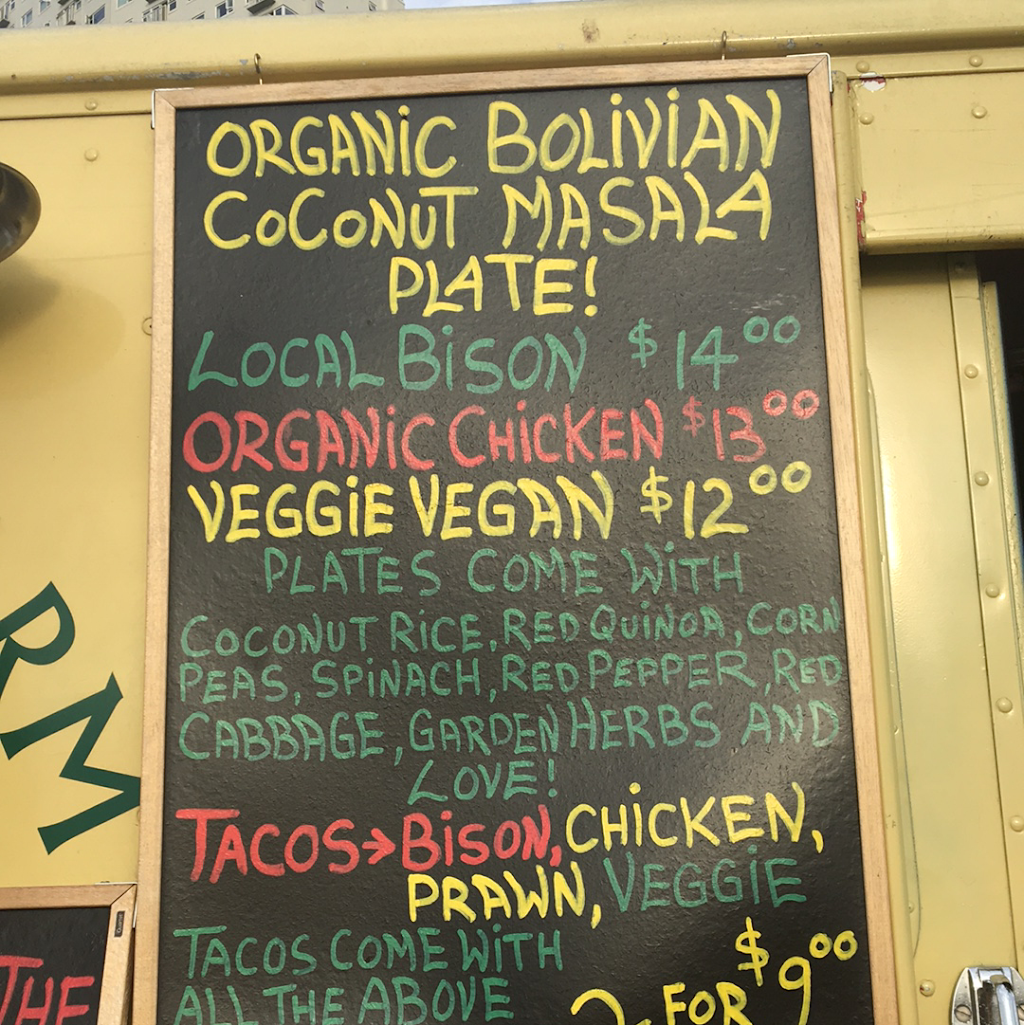 ORGANiC BOLiViAN
COCONUT MASALA
PLATE!
LOCAL BiSON $14.00
ORGANiC CHiCKEN $13.00
VEGGiE VEGAN $12.00
PLATES COME WiTH
COCONUT RiCE, RED QUiNOA, CORN
PEAS, SPiNACH, RED PEPPER, RED
CABBAGE, GARDEN HERBS AND
LOVE!
TACOS → BiSON, CHiCKEN,
PRAWN, VEGGiE
TACOS COME WiTH
ALL THE ABOVE
2 FOR $9.00
RM
THE